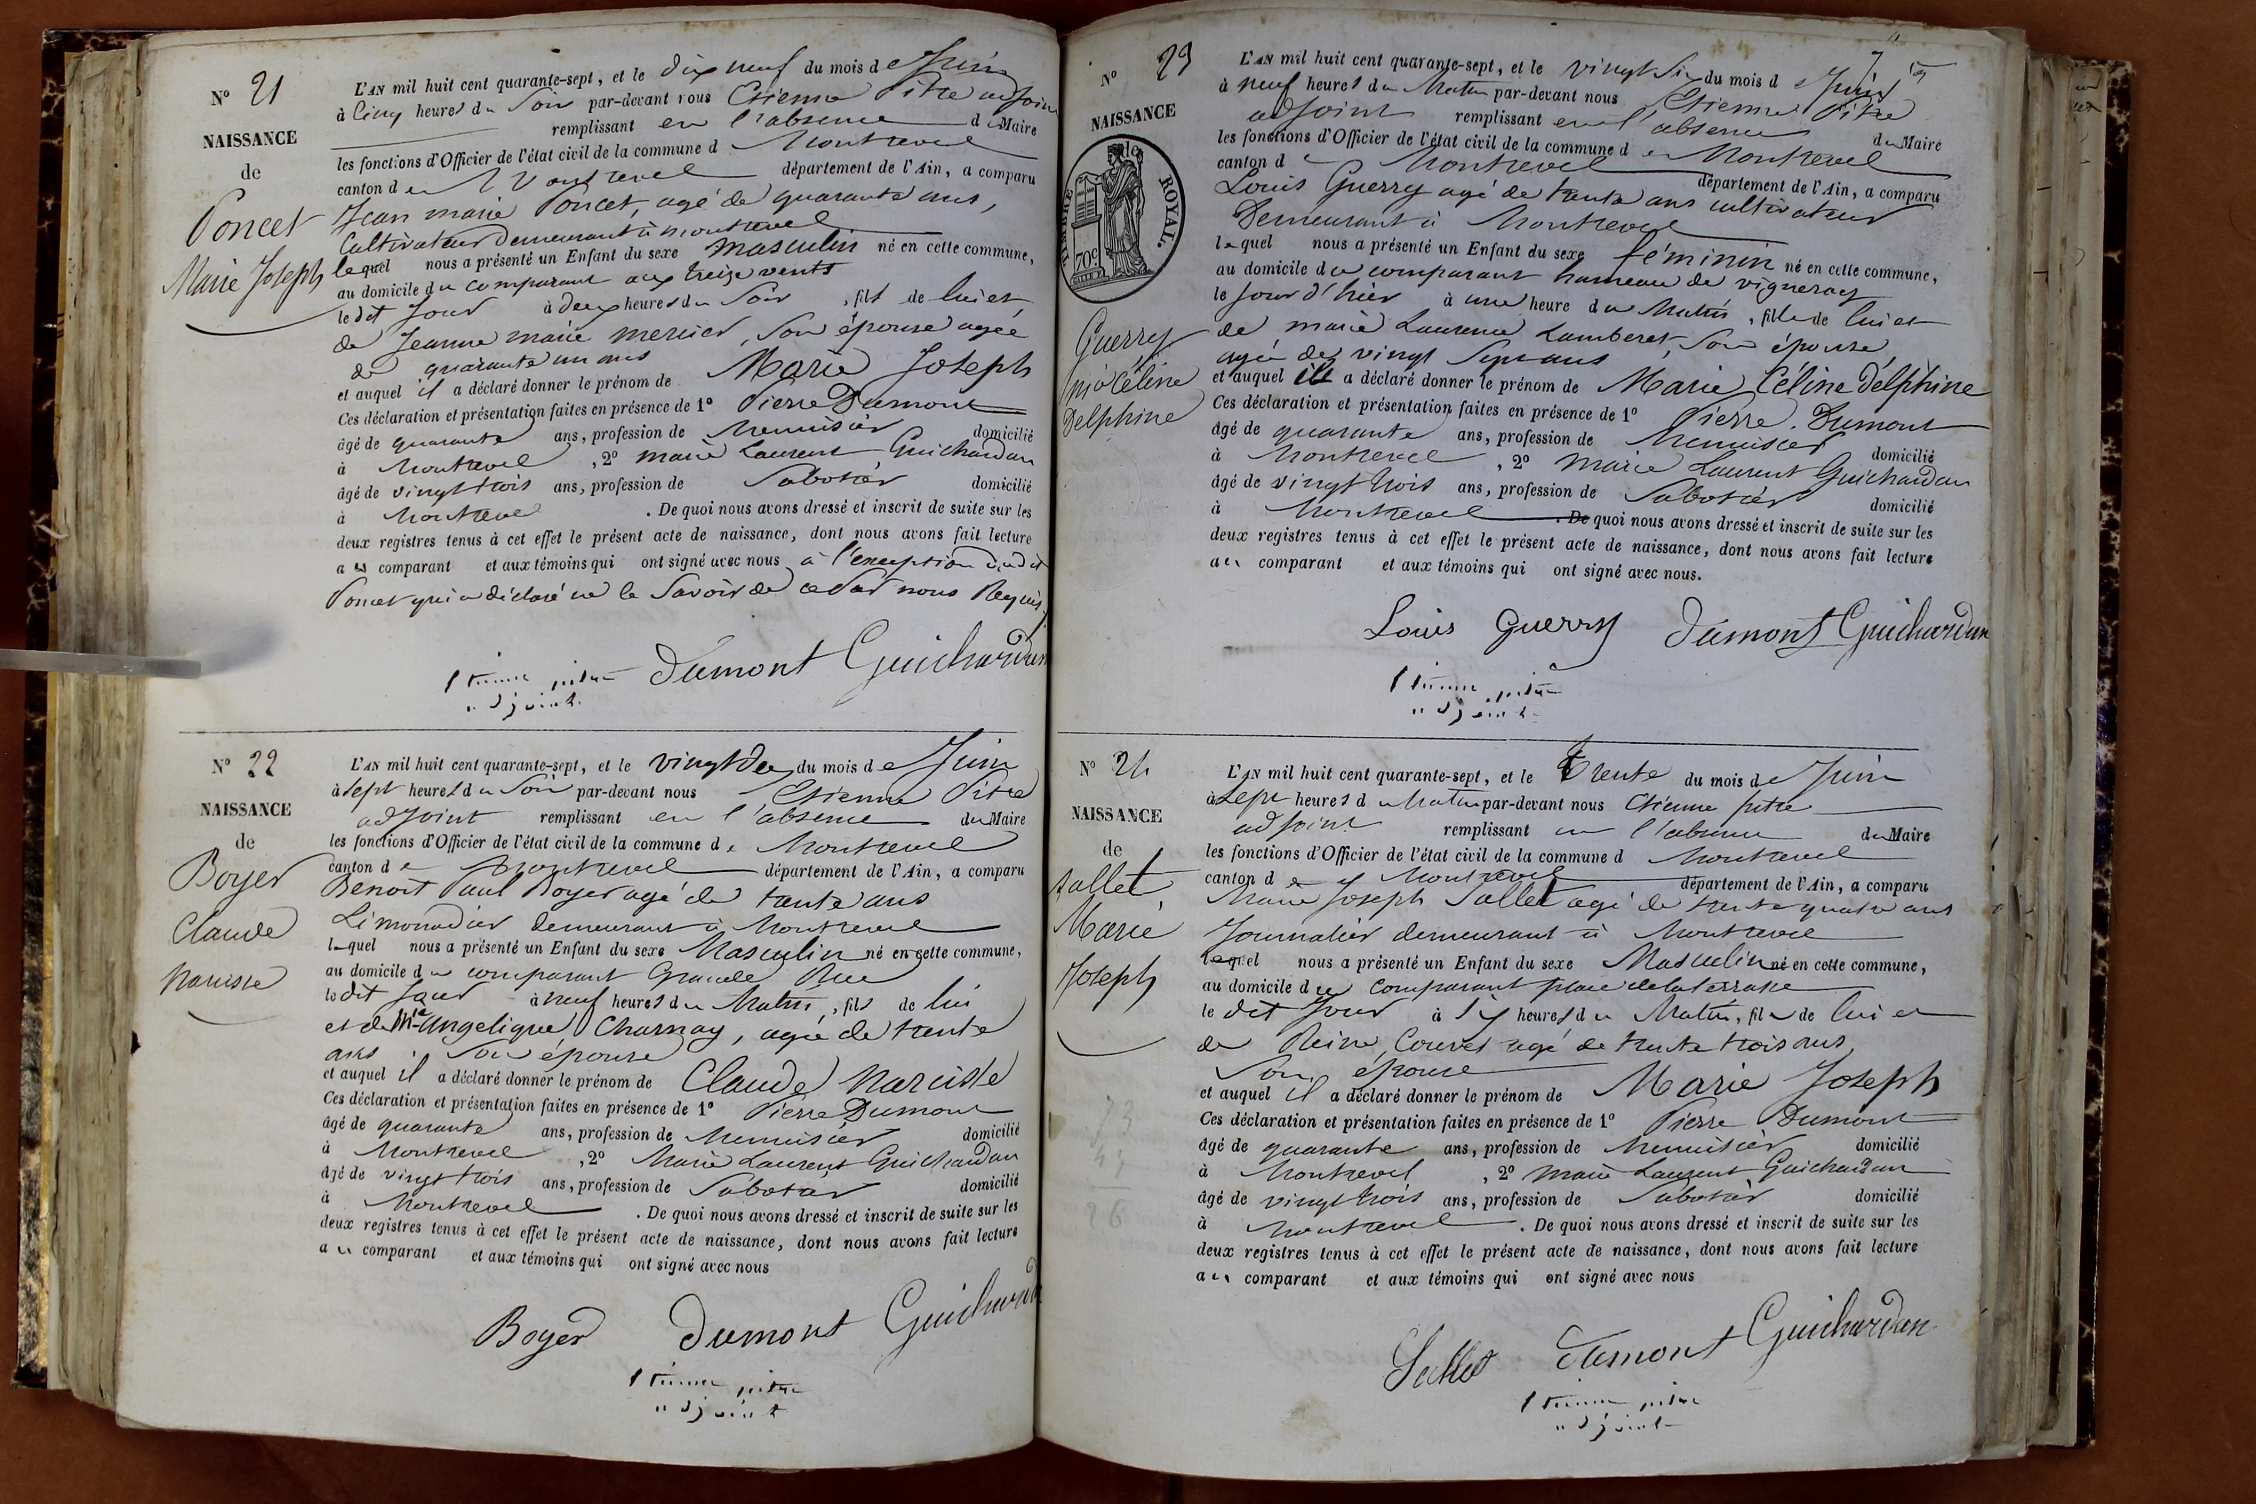 N° 21
NAISSANCE
de
Poncet
Marie Joseph
L'AN mil huit cent quarante-sept, et le dix neuf du mois de Juin
à Cinq heures du Soir par-devant nous Etienne Pitre adjoint
remplissant en l'absence du Maire
les fonctions d'Officier de l'état civil de la commune d Montrevel
canton de Montrevel département de l'Ain, a comparu
Jean marie Poncet, agé de quarante ans,
Cultivateur demeurant à montrevel
lequel nous a présenté un Enfant du sexe masculin né en cette commune,
au domicile du comparant aux treize vents
le dit jour à deux heures du Soir, fils de lui et
de Jeanne marie mercier, son épouse agée
de quarante un ans
et auquel il a déclaré donner le prénom de Marie Joseph
Ces déclaration et présentation faites en présence de 1° Pierre Dumont
âgé de quarante ans, profession de Menuisier domicilié
à Montrevel, 2° marie Laurent Guichardan
âgé de vingt trois ans, profession de Sabotier domicilié
à Montrevel. De quoi nous avons dressé et inscrit de suite sur les
deux registres tenus à cet effet le présent acte de naissance, dont nous avons fait lecture
au comparant et aux témoins qui ont signé avec nous à l'exception dudit
Poncet qui a déclaré ne le Savoir de ce par nous Requis.
Dumont Guichardan
Etienne pitre
adjoint
N° 22
NAISSANCE
de
Boyer
Claude
Narcisse
L'AN mil huit cent quarante-sept, et le vingt deux du mois de Juin
à Sept heures du Soir par-devant nous Etienne Pitre
adjoint remplissant en l'absence du Maire
les fonctions d'Officier de l'état civil de la commune de Montrevel
canton de Montrevel département de l'Ain, a comparu
Benoit Paul Boyer agé de trente ans
Limonadier demeurant à Montrevel
lequel nous a présenté un Enfant du sexe Masculin né en cette commune,
au domicile du comparant Grande Rue
le dit jour à neuf heures du Matin, fils de lui
et de Mie Angelique Charnay, agée de trente
ans Son épouse
et auquel il a déclaré donner le prénom de Claude Narcisse
Ces déclaration et présentation faites en présence de 1° Pierre Dumont
âgé de quarante ans, profession de Menuisier domicilié
à Montrevel, 2° Marie Laurent Guichardan
âgé de vingt trois ans, profession de Sabotier domicilié
à Montrevel. De quoi nous avons dressé et inscrit de suite sur les
deux registres tenus à cet effet le présent acte de naissance, dont nous avons fait lecture
au comparant et aux témoins qui ont signé avec nous
Boyer Dumont Guichardan
Etienne pitre
adjoint
N° 23
NAISSANCE
de
TIMBRE ROYAL.
70c
Guerry
Céline
Delphine
L'AN mil huit cent quarante-sept, et le vingt Six du mois de Juin
à neuf heures du Matin par-devant nous Etienne Pitre
adjoint remplissant en l'absence du Maire
les fonctions d'Officier de l'état civil de la commune de Montrevel
canton de Montrevel département de l'Ain, a comparu
Louis Guerry agé de trente ans cultivateur
Demeurant à Montrevel
lequel nous a présenté un Enfant du sexe féminin né en cette commune,
au domicile du comparant hameau de vigneray
le Jour d'hier à une heure du Matin, fille de lui et
de marie Laurence Lamberet, Son épouse,
agée de vingt Sept ans
et auquel il a déclaré donner le prénom de Marie Céline Delphine
Ces déclaration et présentation faites en présence de 1° Pierre Dumont
âgé de quarante ans, profession de Menuisier domicilié
à Montrevel, 2° Marie Laurent Guichardan
âgé de vingt trois ans, profession de Sabotier domicilié
à Montrevel. De quoi nous avons dressé et inscrit de suite sur les
deux registres tenus à cet effet le présent acte de naissance, dont nous avons fait lecture
au comparant et aux témoins qui ont signé avec nous.
Louis Guerry Dumont Guichardan
Etienne pitre
adjoint
N° 24
NAISSANCE
de
Sallet,
Marie
Joseph
L'AN mil huit cent quarante-sept, et le Trente du mois de Juin
à Sept heures du Matin par-devant nous Etienne pitre
adjoint remplissant en l'absence du Maire
les fonctions d'Officier de l'état civil de la commune d Montrevel
canton de Montrevel département de l'Ain, a comparu
Marie Joseph Sallet agé de trente quatre ans
Journalier demeurant à Montrevel
lequel nous a présenté un Enfant du sexe Masculin né en cette commune,
au domicile du comparant place de la terrasse
le dit Jour à Six heures du Matin, fils de lui et
de Reine Couvet agé de trente trois ans,
Son épouse
et auquel il a déclaré donner le prénom de Marie Joseph
Ces déclaration et présentation faites en présence de 1° Pierre Dumont
âgé de quarante ans, profession de Menuisier domicilié
à Montrevel, 2° Marie Laurent Guichardan
âgé de vingt trois ans, profession de Sabotier domicilié
à Montrevel. De quoi nous avons dressé et inscrit de suite sur les
deux registres tenus à cet effet le présent acte de naissance, dont nous avons fait lecture
au comparant et aux témoins qui ont signé avec nous
Sallet Dumont Guichardan
Etienne pitre
adjoint